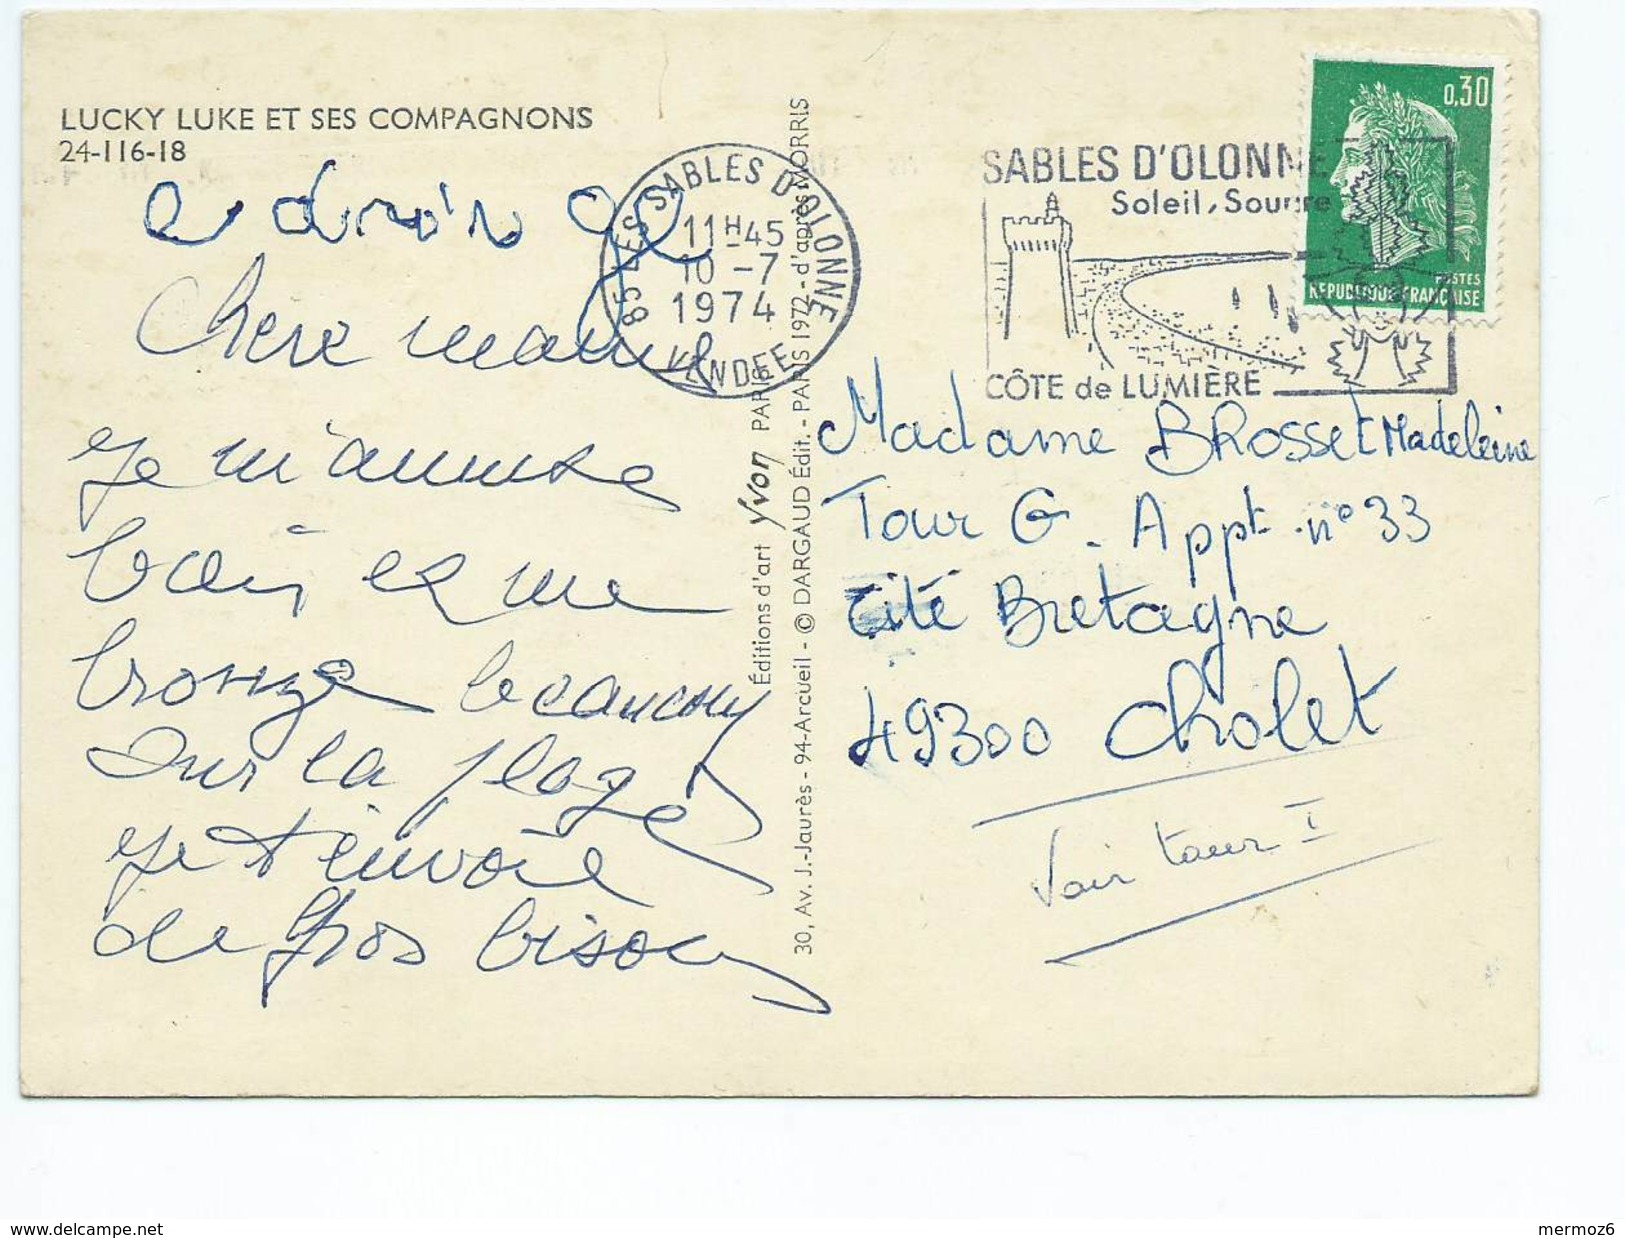 LUCKY LUKE ET SES COMPAGNONS
24-116-18
Chère
je m'amuse
bien et me
bronze beaucoup
sur la plage
je t'envoie
de gros bisous
85 LES SABLES D'OLONNE
11H45
10 -7
1974
VENDEE
Éditions d'art Yvon PARIS
30, Av. J.-Jaurès - 94-Arcueil - © DARGAUD Édit. - PARIS 1972 - d'après MORRIS
SABLES D'OLONNE
Soleil, Sourire
CÔTE de LUMIÈRE
0,30
POSTES
REPUBLIQUE FRANÇAISE
Madame BRosset Madeleine
Tour G. Appt. n° 33
Cité Bretagne
49300 Cholet
Voir tour I
www.delcampe.net
mermoz6